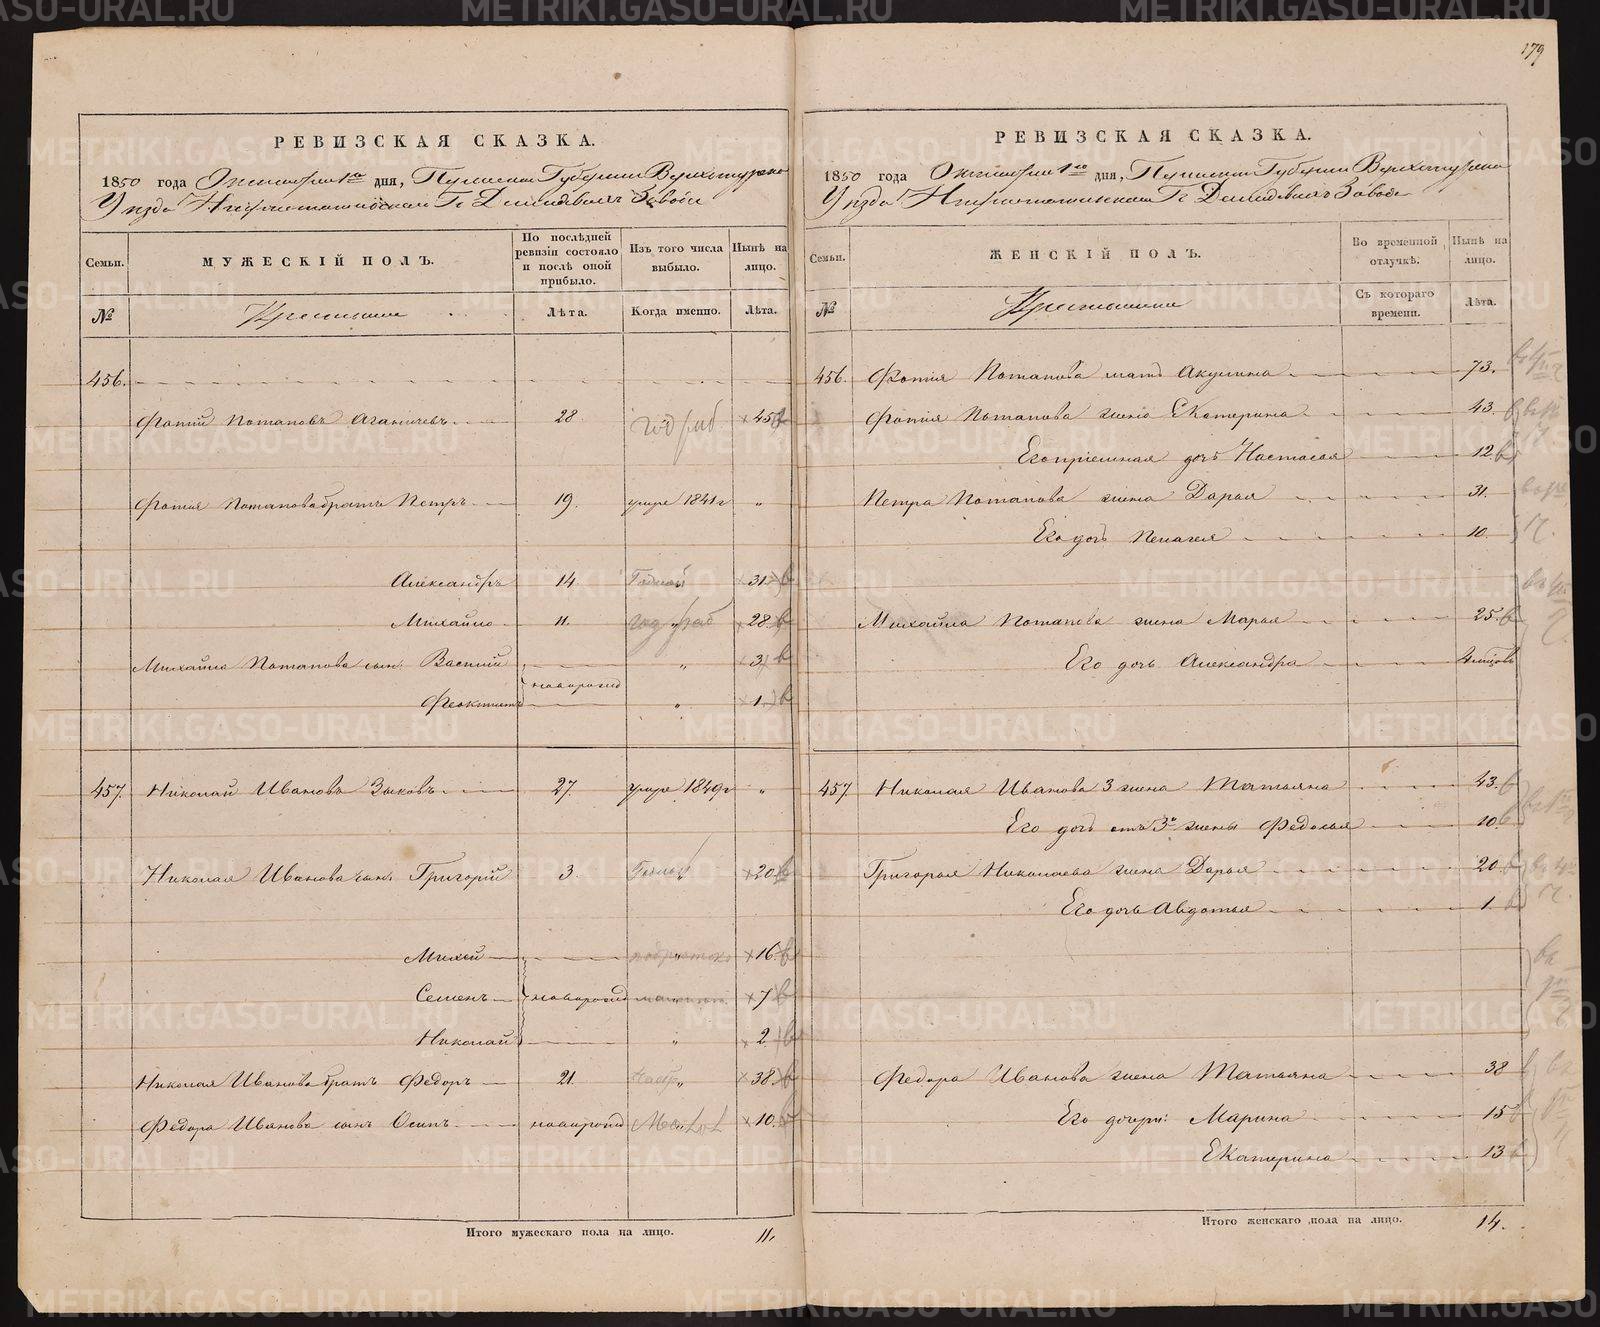 179
РЕВИЗСКАЯ СКАЗКА.
1850 года Октября 1го дня, Пермской Губернии Верхотурскаго
Уезда Нижнетагильскаго Гг Демидовыхъ Завода
Семьи.
МУЖЕСКІЙ ПОЛЪ.
По послѣдней ревизіи состояло и послѣ оной прибыло.
Изъ того числа выбыло.
Нынѣ на лицо.
№
Крестьяне
Лѣта.
Когда именно.
Лѣта.
456.
Фотій Потаповъ 28 год раб 45
Фотія Потапова братъ Петръ 19. умре 1841 г "
Александръ 14. Годной 31
Михайло 11. год раб 28
Михайла Потапова сын. Василій " 3
новорожд
Феоктистъ " 1
457. Николай Ивановъ Зыковъ 27. умре 1849 г "
Николая Иванова сын. Григорій 3. 20
Михей 16
Семенъ новорожд 7
Николай " 2
Николая Иванова братъ Федоръ 21. 38
Федора Иванова сынъ Осипъ новорожд 10
Итого мужескаго пола на лицо. 11.
РЕВИЗСКАЯ СКАЗКА.
1850 года Октября 1го дня, Пермской Губернии Верхотурскаго
Уезда Нижнетагильскаго Гг Демидовыхъ Завода
Семьи.
ЖЕНСКІЙ ПОЛЪ.
Во временной отлучкѣ.
Нынѣ на лицо.
№
Крестьяне
Съ котораго времени.
Лѣта.
456. Фотія Потапова мать Акулина 73.
Фотія Потапова жена Екатерина 43
Его пріемная дочь Настасья 12
Петра Потапова жена Дарья 31.
Его дочь Пелагея 10.
Михайла Потапова жена Марья 25
Его дочь Александра 4 мѣсяцовъ
457. Николая Иванова 3 жена Татьяна 43
Его дочь отъ 3й жены Федосья 10
Григорья Николаева жена Дарья 20
Его дочь Авдотья 1
Федора Иванова жена Татьяна 38
Его дочери: Марина 15
Екатерина 13
Итого женскаго пола на лицо. 14.
METRIKI.GASO-URAL.RU